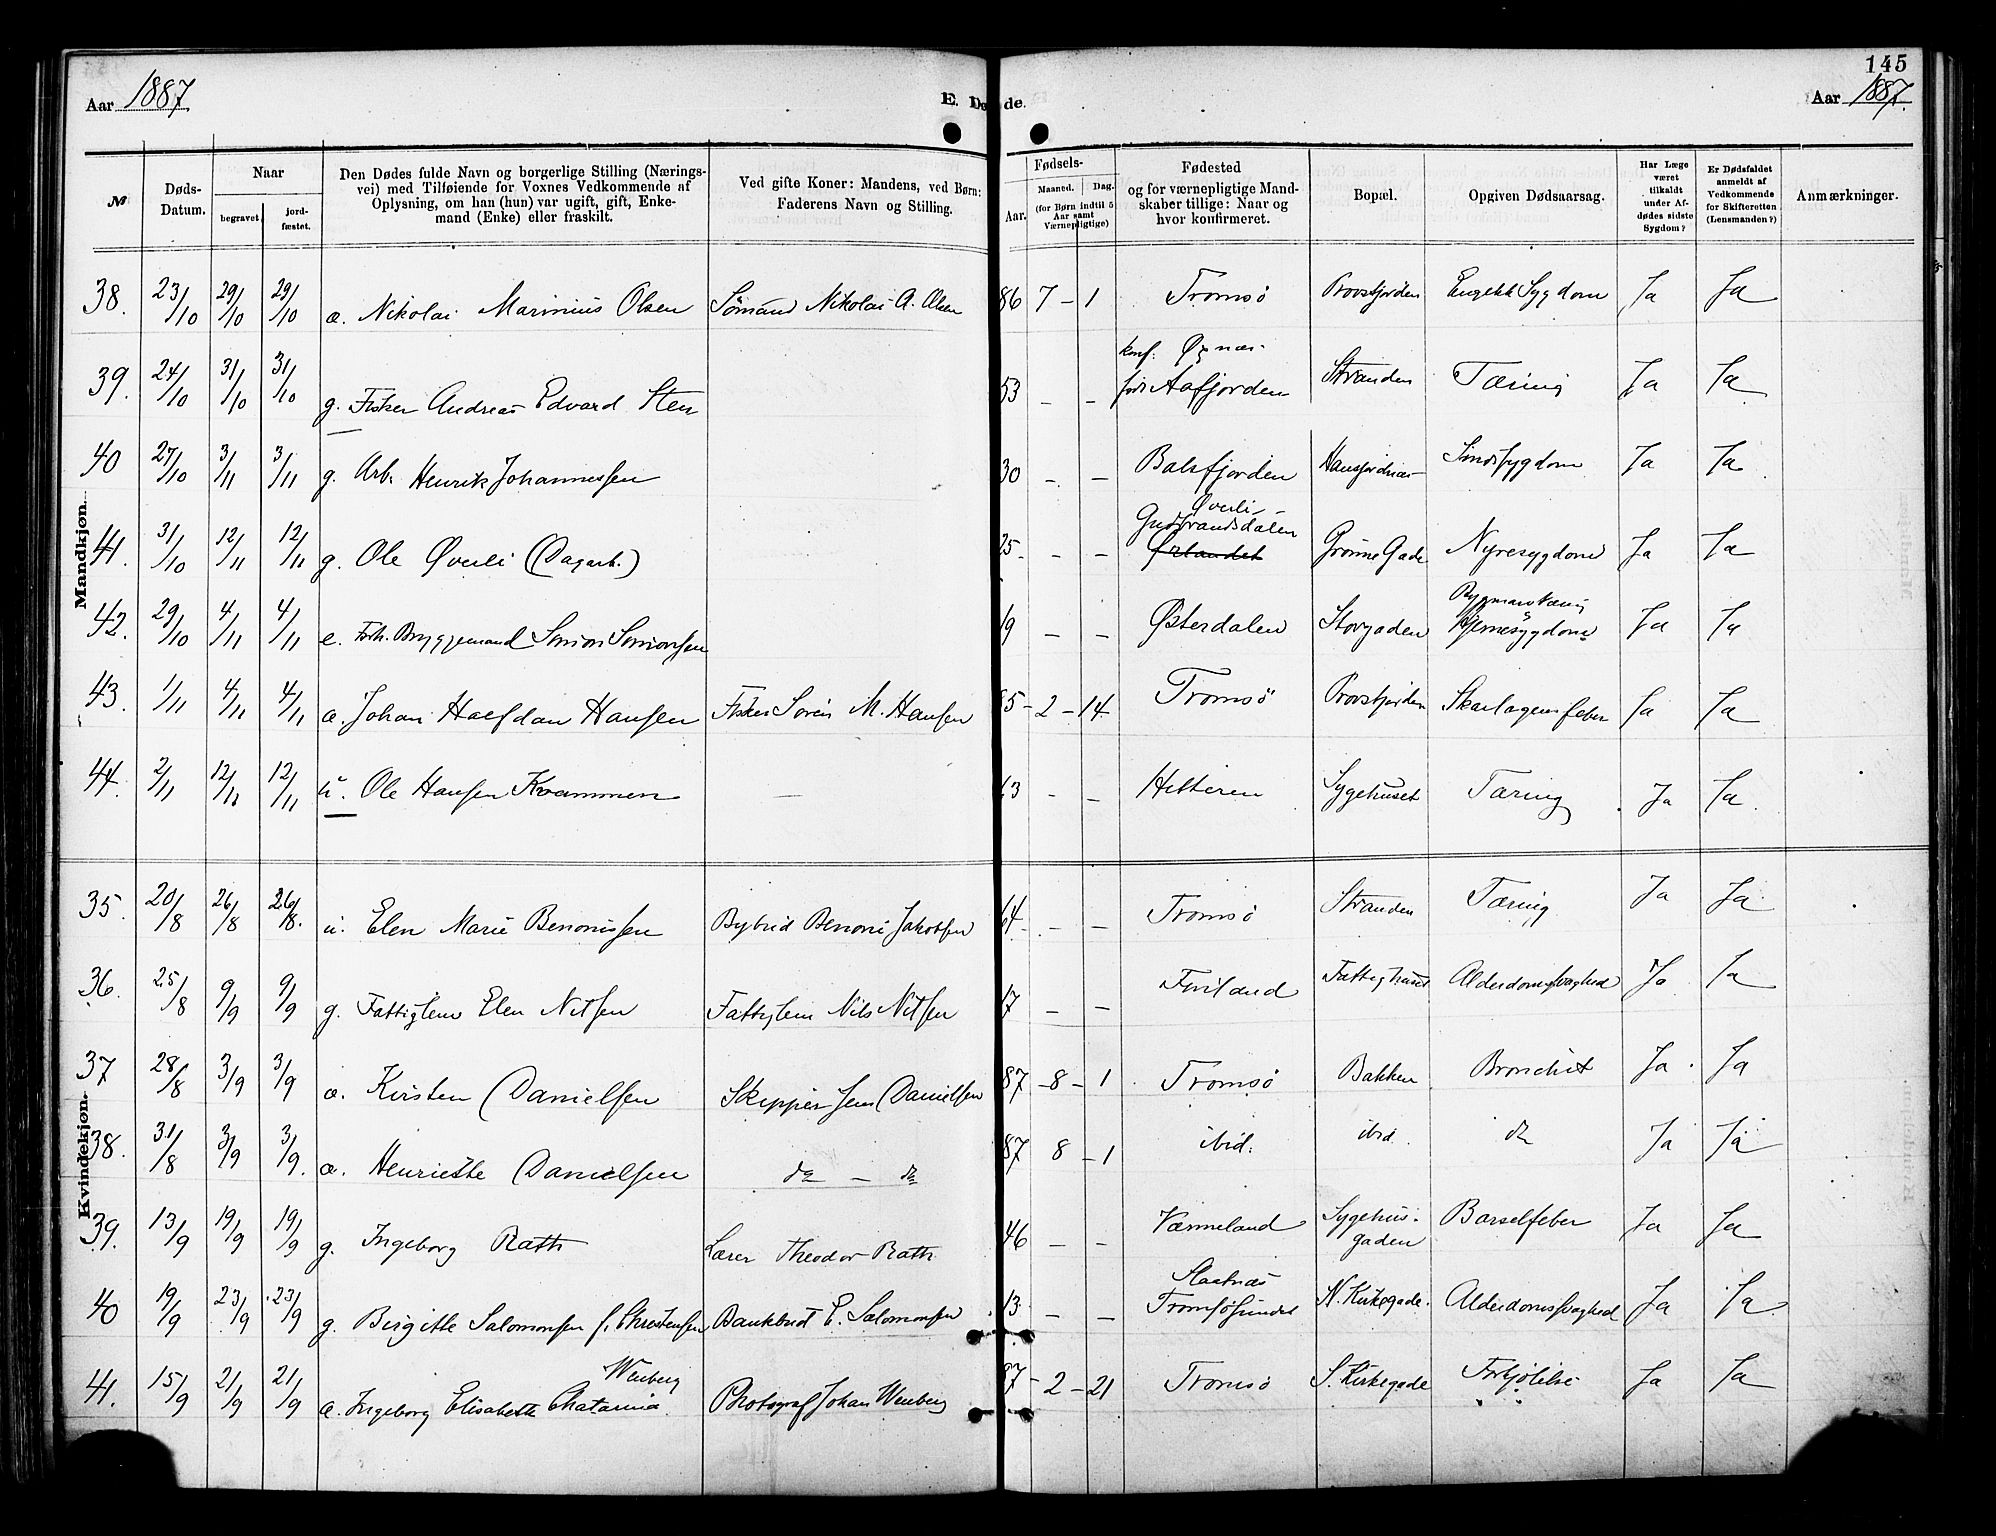 145
Aar 1887.
E. Dø de.
Aar 1887.
№
Døds-Datum.
Naar
begravet.
jord-fæstet.
Den Dødes fulde Navn og borgerlige Stilling (Nærings-
vei) med Tilføiende for Voxnes Vedkommende af
Oplysning, om han (hun) var ugift, gift, Enke-
mand (Enke) eller fraskilt.
Ved gifte Koner: Mandens, ved Børn:
Faderens Navn og Stilling.
Fødsels-
Aar.
Maaned.
Dag.
(for Børn indtil 5
Aar samt
Værnepligtige)
Fødested
og for værnepligtige Mand-
skaber tillige: Naar og
hvor konfirmeret.
Bopæl.
Opgiven Dødsaarsag.
Har Læge
været
tilkaldt
under Af-
dødes sidste
Sygdom?
Er Dødsfaldet
anmeldt af
Vedkommende
for Skifteretten
(Lensmanden?)
Anmærkninger.
Mandkjøn.
38. 23/10 29/10 29/10 a. Nikolai Marinius Olsen Sømand Nikolai A. Olsen 86 7 - 1 Tromsø Provstjorden Engelsk Sygdom Ja Ja
konf.
39. 24/10 31/10 31/10 g. Fisker Andreas Edvard Sten 53 - - Aafjorden Stranden Tæring Ja Ja
40 27/10 3/11 3/11 g. Arb. Henrik Johannessen 30 - - Balsfjorden Sindssygdom Ja Ja
Øverli
Gudbrandsdalen
41. 31/10 12/11 12/11 g. Ole Øverli (Dagarb.) 25 - - Ørlandet Grønne Gade Nyresygdom Ja Ja
Rygmarvstæring
42. 29/10 4/11 4/11 e. Forh. Bryggemand Simon Simonsen 19 - - Østerdalen Storgaden Hjernesygdom Ja Ja
43. 1/11 4/11 4/11 a. Johan Halfdan Hansen Fisker Søren M. Hansen 85 - 2 - 14 Tromsø Provstjorden Skarlagensfeber Ja Ja
44. 2/11 12/11 12/11 u. Ole Hansen Kvammen — 63 - - Hitteren Sygehuset Tæring Ja Ja
Kvindekjøn.
35. 20/8 26/8 26/8. u. Elen Marie Benonissen Bybud Benoni Jakobsen 64 - - Tromsø Stranden Tæring Ja Ja
36. 25/8 9/9 9/9 g. Fattiglem Elen Nilsen Fattiglem Nils Nilsen 17 - - Finland Fattighuset Alderdomssvaghed Ja Ja
37 28/8 3/9 3/9 a. Kirsten Danielsen Skipper Jens Danielsen 87 - 8 - 1 Tromsø Bakken Bronchit Ja Ja
38. 31/8 3/9 3/9. a. Henriette Danielsen do — do 87 8 - 1 ibid. ibid. do Ja Ja
39. 13/9 19/9 19/9 g. Ingeborg Rath Lærer Theodor Rath 46 - - Værmeland Sygehus-
gaden Barselfeber Ja Ja
Slaatnæs
40 19/9 23/9 23/9 g. Birgitte Salomonsen f. Christensen Bankbud E. Salomonsen 13 - - Tromsøsundet N. Kirkegade. Alderdomssvaghed Ja Ja
Wenberg
41. 15/9 21/9 21/9 a. Ingeborg Elisabeth Chatarina Photograf Johan Wenberg 87 - 2 - 21 Tromsø S. Kirkegade Forkjølelse Ja Ja